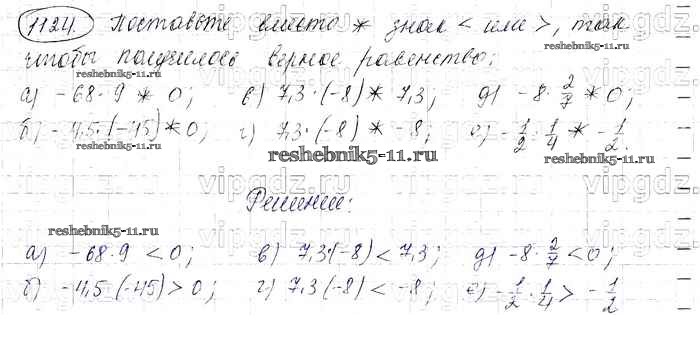 1124. Поставьте вместо * знак < или >, так
чтобы получилось верное равенство:
reshebnik5-11.ru
а) -68·9 * 0; в) 7,3·(-8) * 7,3; д) -8·2/7 * 0;
б) -4,5·(-45) * 0; г) 7,3·(-8) * -8; е) -1/2·1/4 * -1/2.
reshebnik5-11.ru reshebnik5-11.ru reshebnik5-11.ru
vipgdz vipgdz.
Решение:
reshebnik5-11.ru
а) -68·9 < 0; в) 7,3·(-8) < 7,3; д) -8·2/7 < 0;
б) -4,5·(-45) > 0; г) 7,3(-8) < -8; е) -1/2·1/4 > -1/2